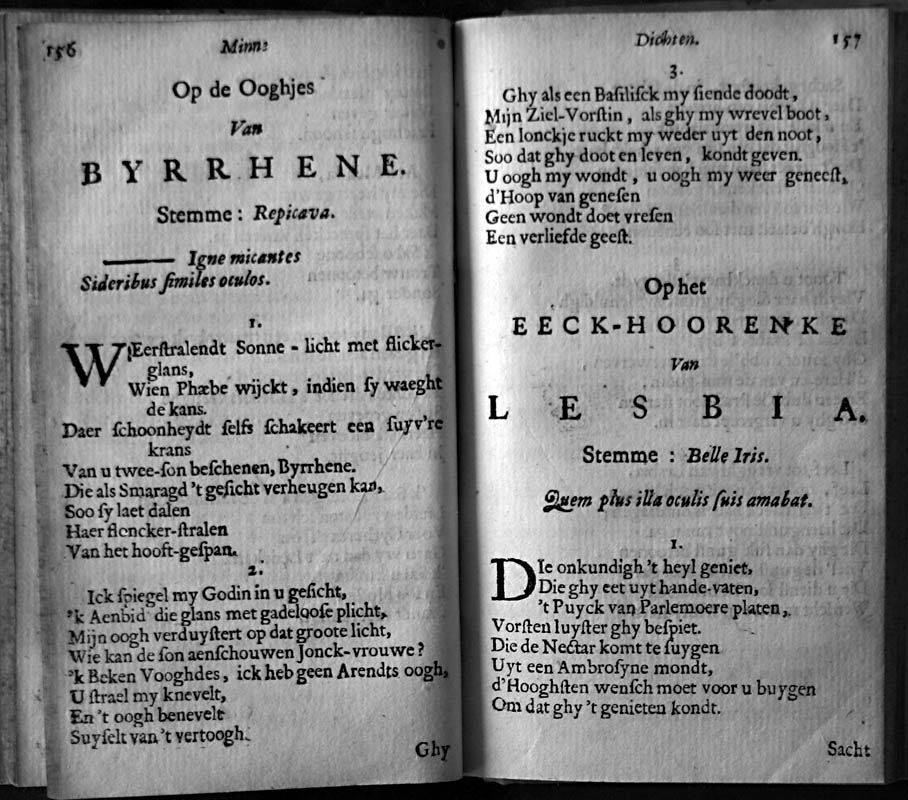 156
Minne
Op de Ooghjes
Van
BYRRHENE.
Stemme: Repicava.
——— Igne micantes
Sideribus ſimiles oculos.
1.
WEerſtralendt Sonne-licht met flicker-
glans,
Wien Phæbe wijckt, indien ſy waeght
de kans.
Daer ſchoonheydt ſelfs ſchakeert een ſuyv're
krans
Van u twee-ſon beſchenen, Byrrhene.
Die als Smaragd 't geſicht verheugen kan,
Soo ſy laet dalen
Haer floncker-ſtralen
Van het hooft-geſpan.
2.
Ick ſpiegel my Godin in u geſicht,
'k Aenbid die glans met gadelooſe plicht,
Mijn oogh verduyſtert op dat groote licht,
Wie kan de ſon aenſchouwen Jonck-vrouwe?
'k Beken Vooghdes, ick heb geen Arendts oogh,
U ſtrael my knevelt,
En 't oogh benevelt
Suyſelt van 't vertoogh.
Ghy
Dichten.
157
3.
Ghy als een Baſiliſck my ſiende doodt,
Mijn Ziel-Vorſtin, als ghy my wrevel boot,
Een lonckje ruckt my weder uyt den noot,
Soo dat ghy doot en leven, kondt geven.
U oogh my wondt, u oogh my weer geneeſt,
d'Hoop van geneſen
Geen wondt doet vreſen
Een verliefde geeſt.
Op het
EECK-HOORENKE
Van
LESBIA.
Stemme: Belle Iris.
Quem plus illa oculis ſuis amabat.
1.
DIe onkundigh 't heyl geniet,
Die ghy eet uyt hande-vaten,
't Puyck van Parlemoere platen,
Vorſten luyſter ghy beſpiet.
Die de Nectar komt te ſuygen
Uyt een Ambroſyne mondt,
d'Hooghſten wenſch moet voor u buygen
Om dat ghy 't genieten kondt.
Sacht